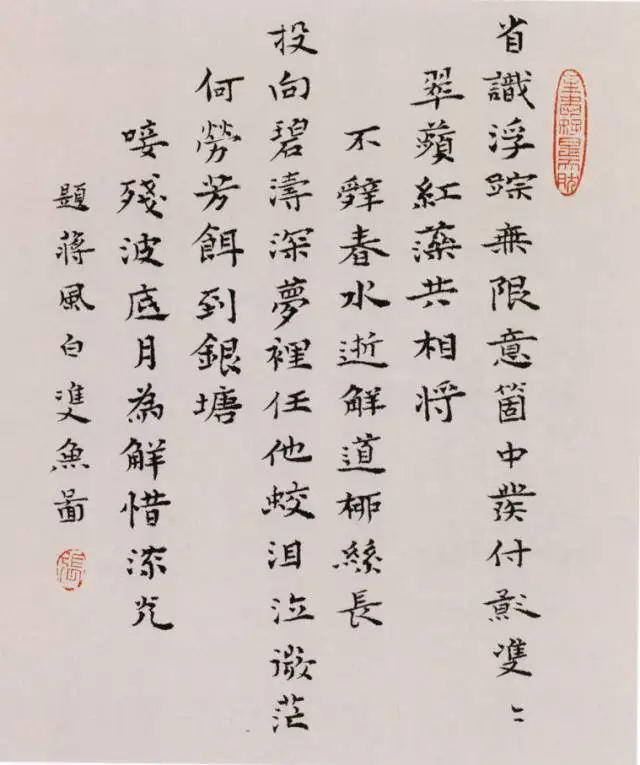 省識浮踪無限意箇中發付影雙〻
翠蘋紅藻共相將
不辭春水逝解道柳絲長
投向碧濤深夢裡任他蛟泪泣微茫
何勞芳餌到銀塘
唼殘波底月為解惜流光
題蔣風白雙魚圖